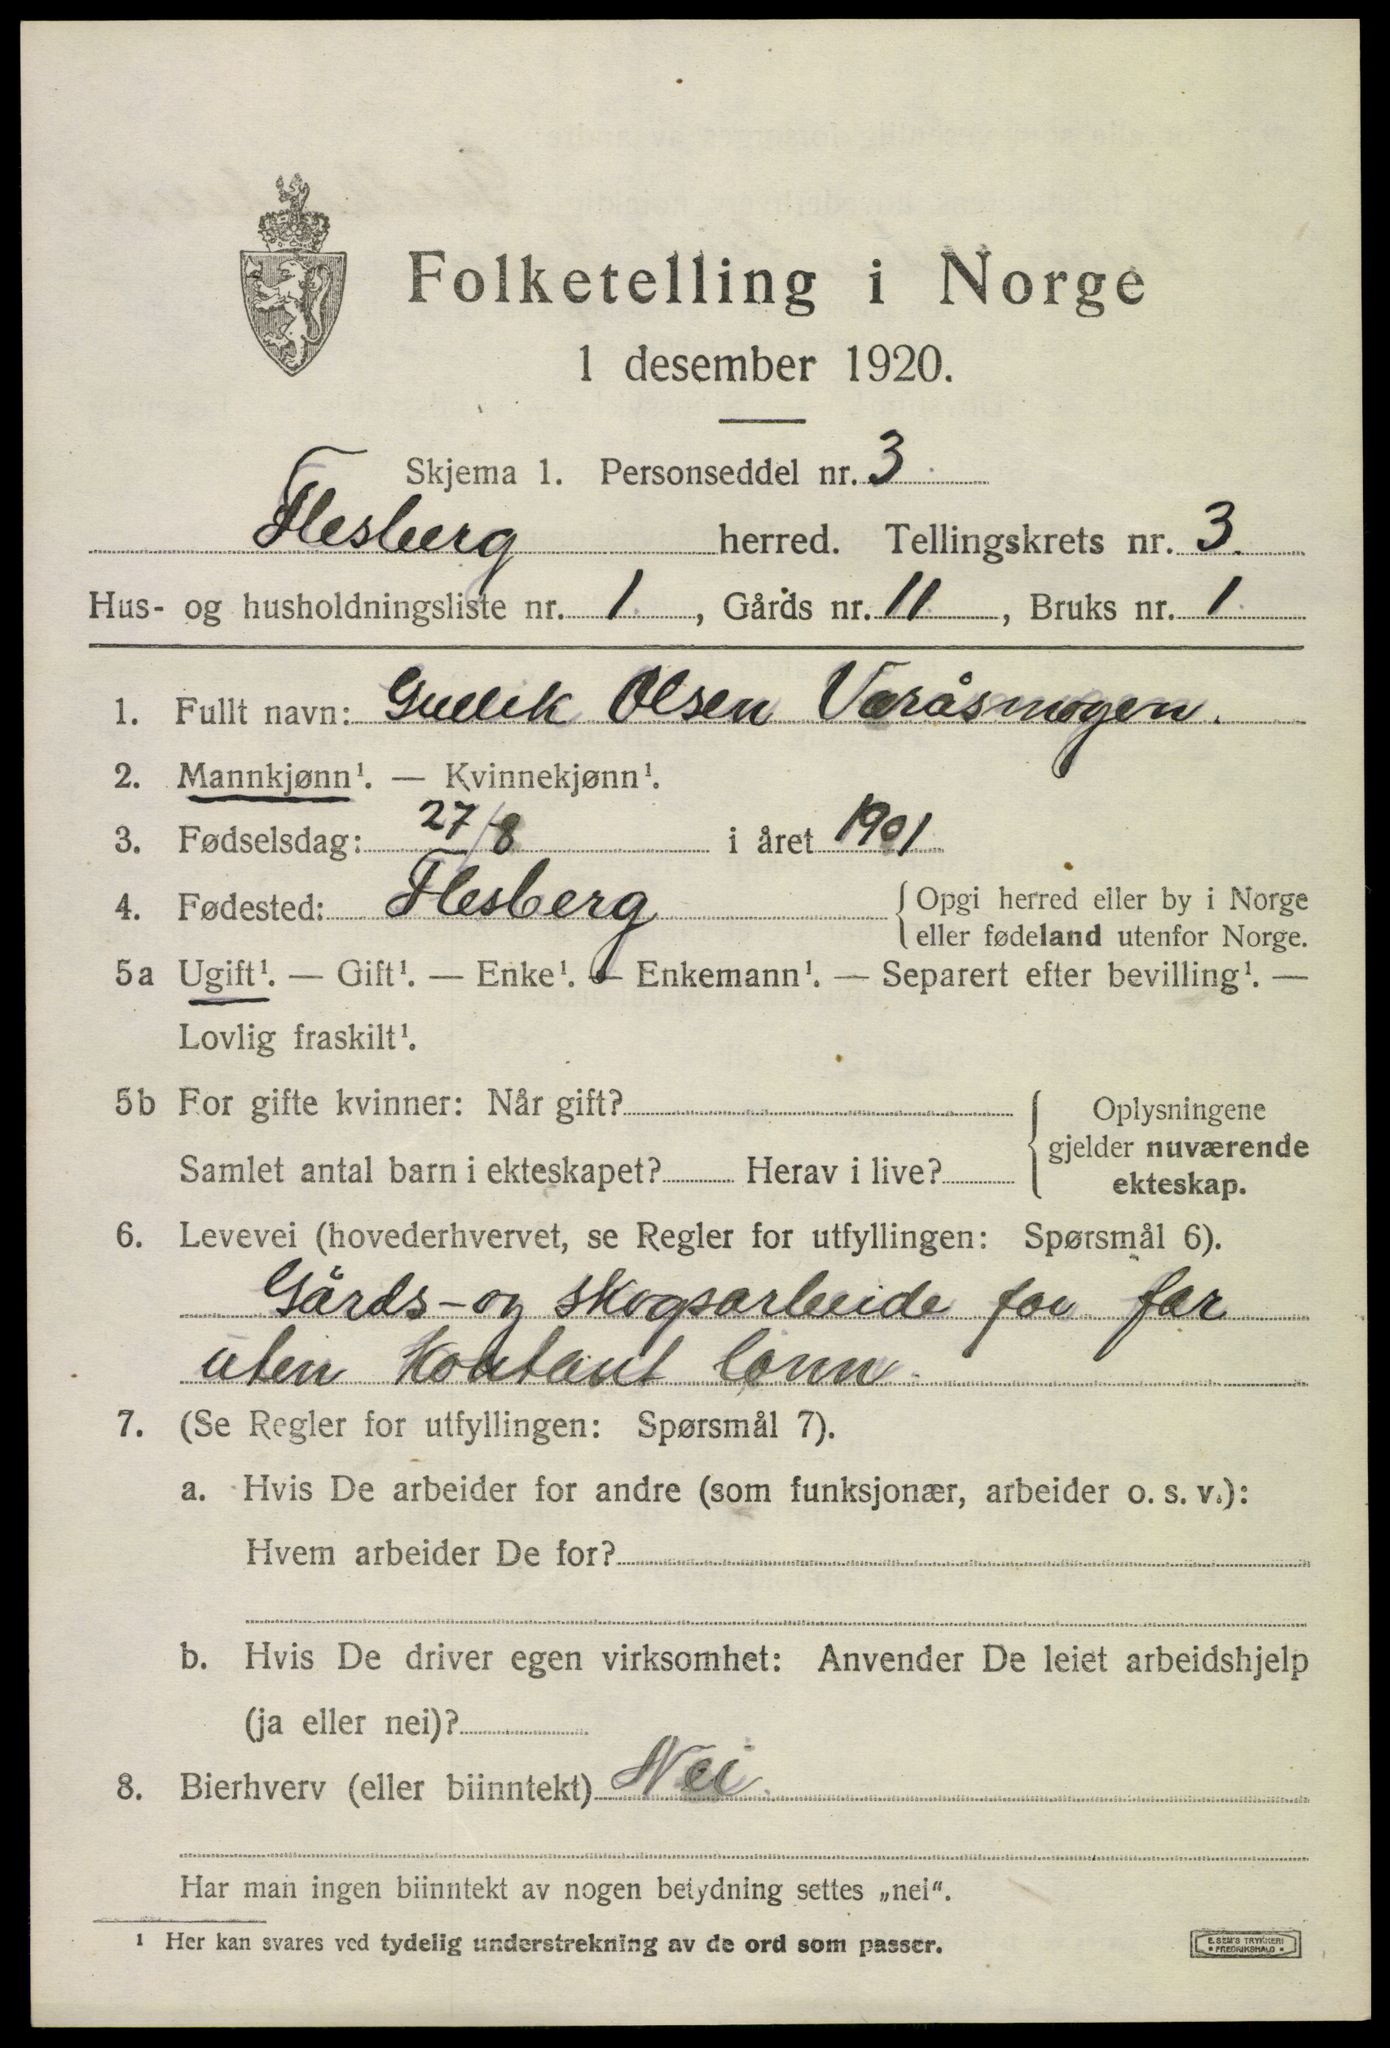 Folketelling i Norge
1 desember 1920.
Skjema 1. Personseddel nr. 3
Flesberg herred. Tellingskrets nr. 3.
Hus- og husholdningsliste nr. 1, Gårds nr. 11, Bruks nr. 1
1. Fullt navn: Gullik Olsen Væråsmogen.
2. Mannkjønn¹. — Kvinnekjønn¹.
3. Fødselsdag: 27/8 i året 1901
4. Fødested: Flesberg { Opgi herred eller by i Norge
eller fødeland utenfor Norge.
5a Ugift¹. — Gift¹. — Enke¹. — Enkemann¹. — Separert efter bevilling¹. —
Lovlig fraskilt¹.
5b For gifte kvinner: Når gift?
Samlet antal barn i ekteskapet? Herav i live?
{ Oplysningene
gjelder nuværende
ekteskap.
6. Levevei (hovederhvervet, se Regler for utfyllingen: Spørsmål 6).
Gårds- og skogsarbeide for far
uten kontant lønn.
7. (Se Regler for utfyllingen: Spørsmål 7).
a. Hvis De arbeider for andre (som funksjonær, arbeider o. s. v.):
Hvem arbeider De for?
b. Hvis De driver egen virksomhet: Anvender De leiet arbeidshjelp
(ja eller nei)?
8. Bierhverv (eller biinntekt) Nei.
Har man ingen biinntekt av nogen betydning settes „nei“.
¹ Her kan svares ved tydelig understrekning av de ord som passer.
E. SEM'S TRYKKERI
• FREDRIKSHALD •